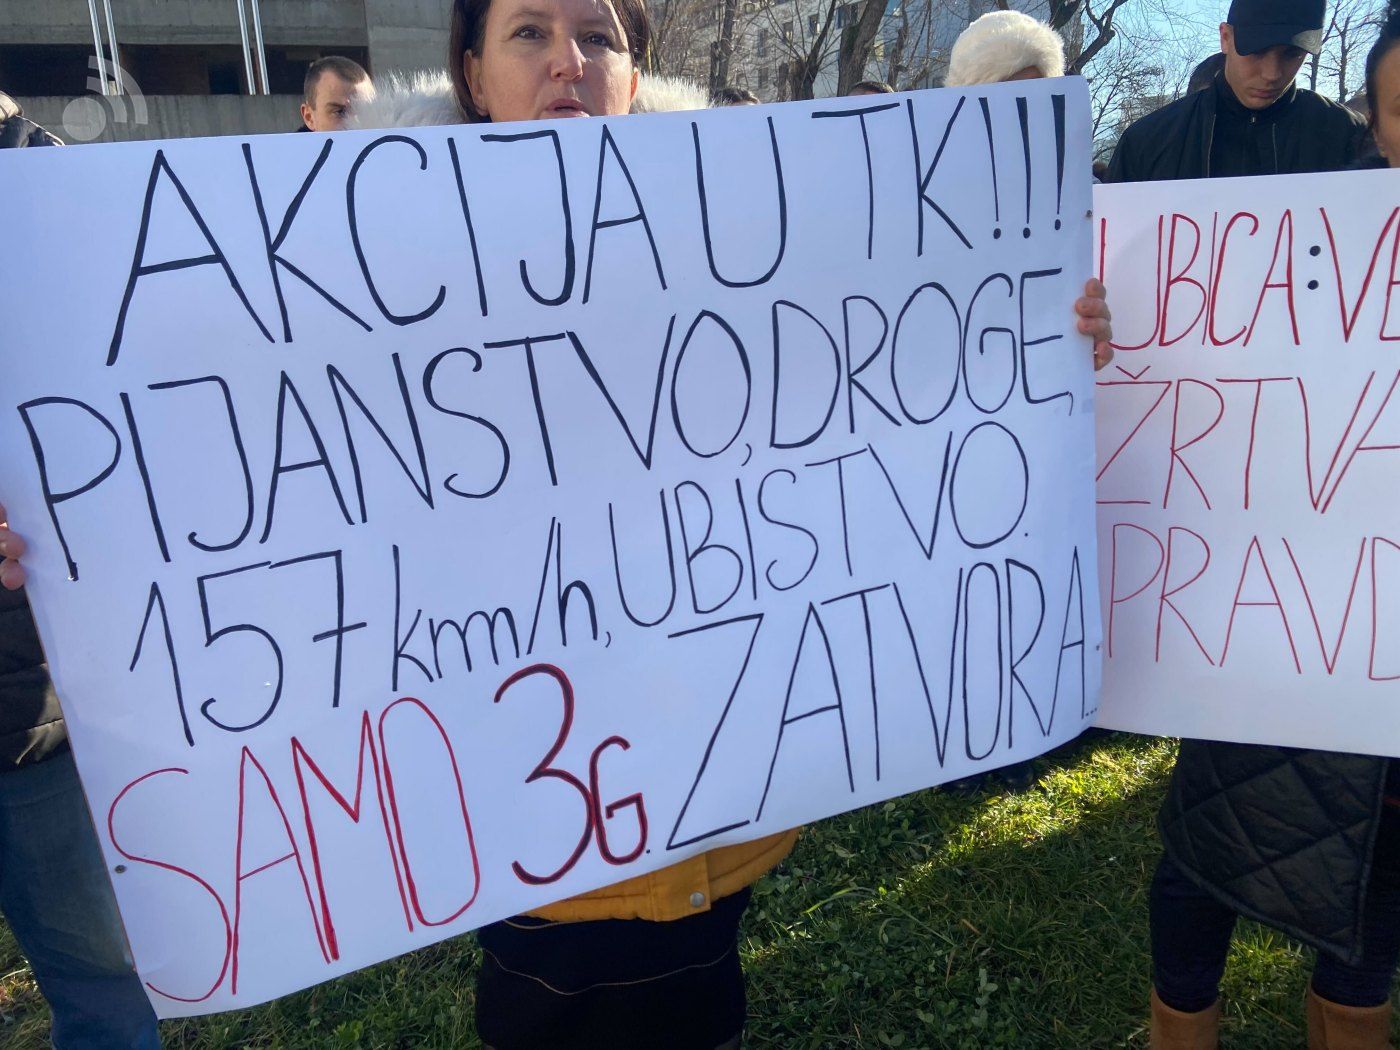 AKCIJA U TK!!!
PIJANSTVO, DROGE,
157 km/h, UBISTVO.
SAMO 3G. ZATVORA...
UBICA: VE
ŽRTVA
PRAVD